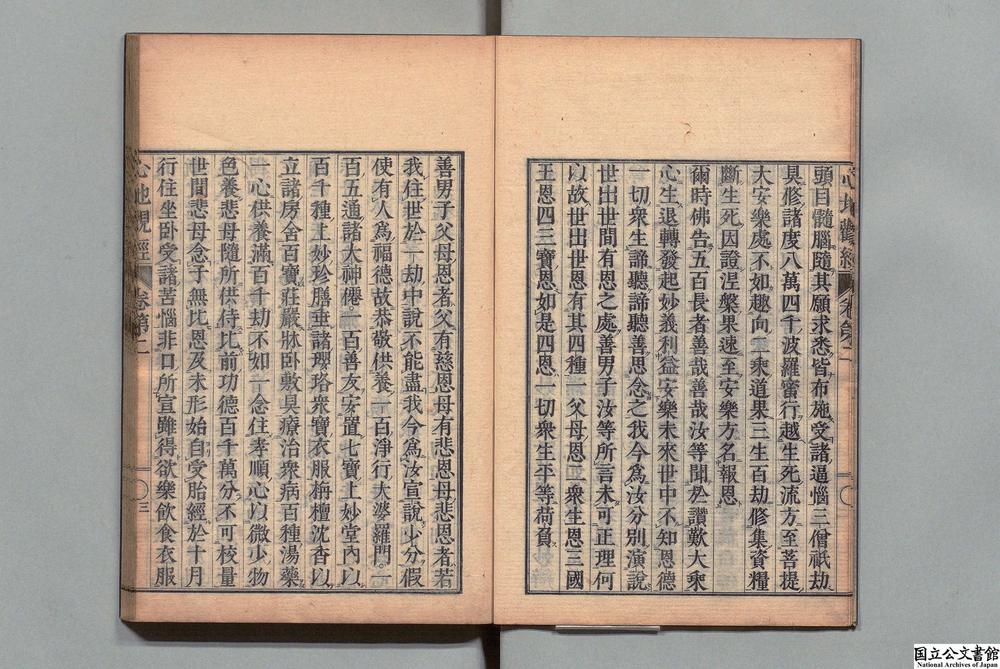 頭目髓腦隨其願求悉皆布施受諸逼惱三僧祇劫
具修諸度八萬四千波羅蜜行越生死流方至菩提
大安樂處不如趣向二乘道果三生百劫修集資糧
斷生死因證涅槃果速至安樂方名報恩
爾時佛告五百長者善哉善哉汝等聞於讚歎大乘
心生退轉發起妙義利益安樂未來世中不知恩德
一切衆生諦聽諦聽善思念之我今爲汝分別演說
世出世間有恩之處善男子汝等所言未可正理何
以故世出世恩有其四種一父母恩二衆生恩三國
王恩四三寶恩如是四恩一切衆生平等荷負
善男子父母恩者父有慈恩母有悲恩母悲恩者若
我住世於一劫中說不能盡我今爲汝宣說少分假
使有人爲福德故恭敬供養一百淨行大婆羅門一
百五通諸大神僊一百善友安置七寶上妙堂內以
百千種上妙珍膳垂諸瓔珞衆寶衣服栴檀沈香以
立諸房舍百寶莊嚴牀臥敷具療治衆病百種湯藥
一心供養滿百千劫不如一念住孝順心以微少物
色養悲母隨所供侍比前功德百千萬分不可校量
世間悲母念子無比恩及未形始自受胎經於十月
行住坐臥受諸苦惱非口所宣雖得欲樂飲食衣服
心地觀經 卷第二 三
国立公文書館
National Archives of Japan